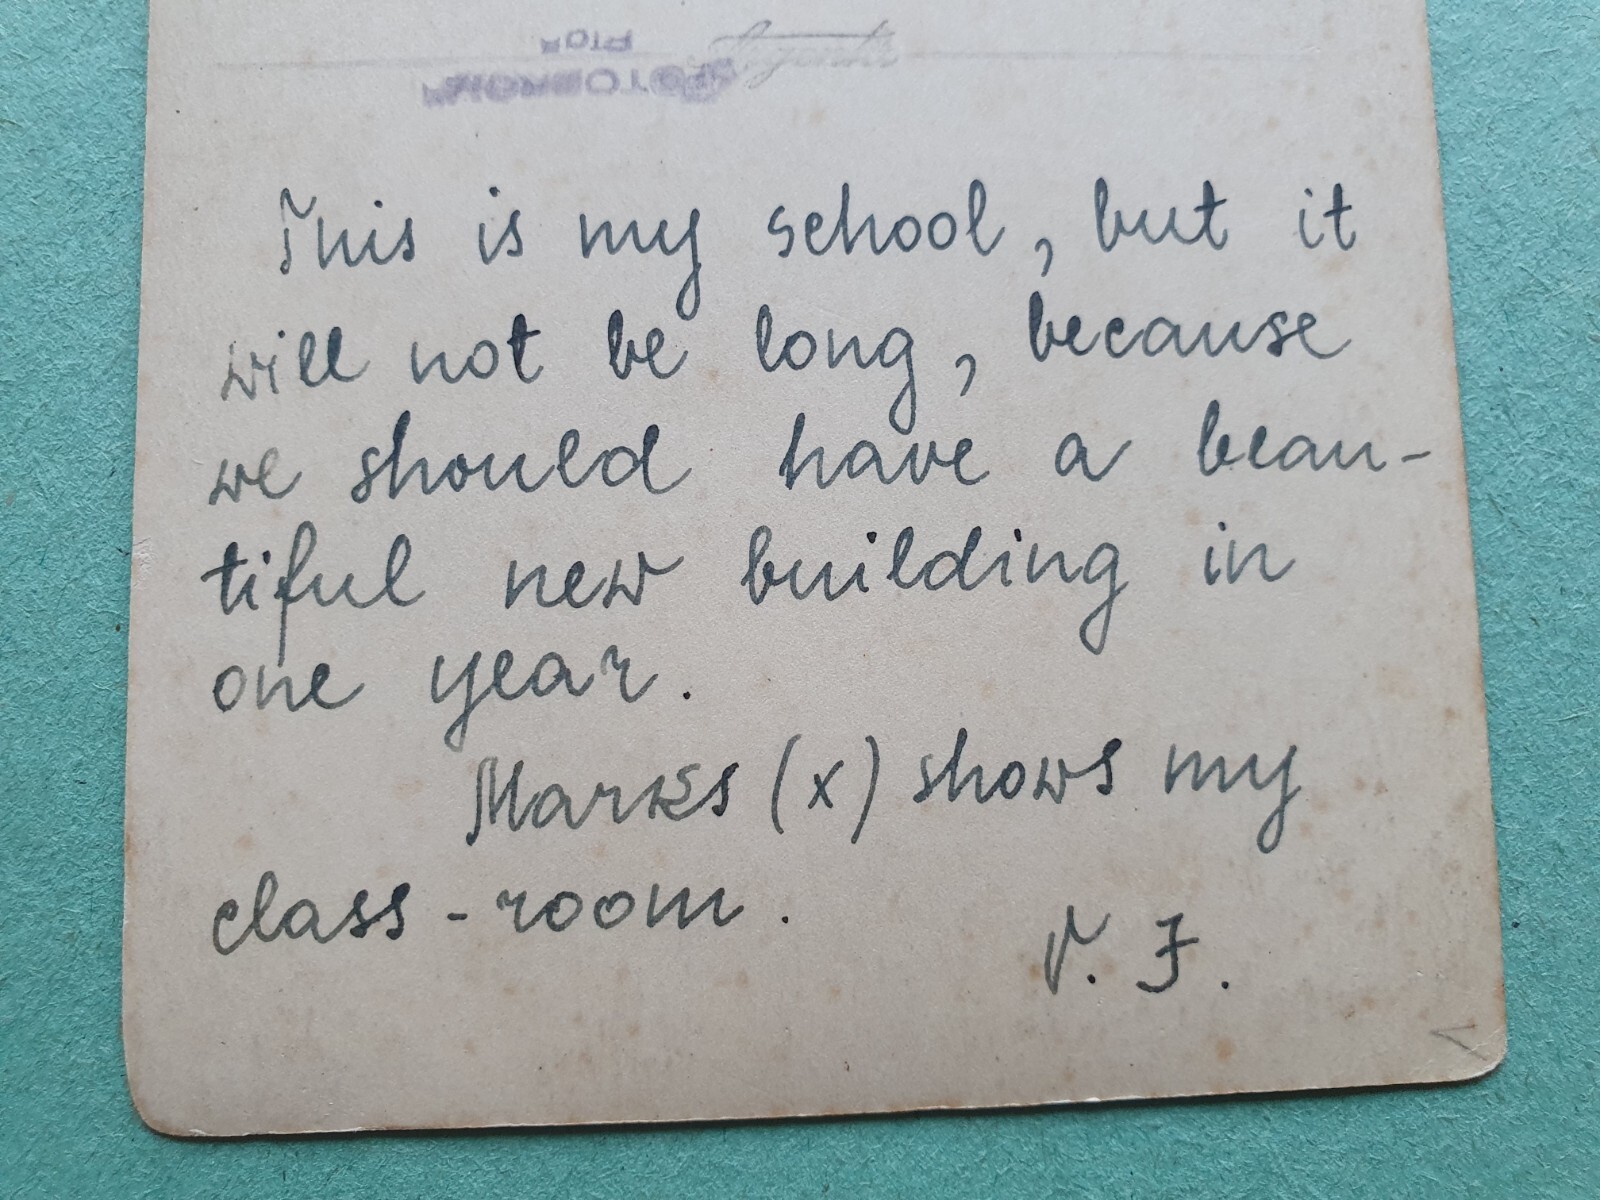 This is my school, but it
will not be long, because
we should have a beau-
tiful new building in
one year.
Marks (x) shows my
class-room.
V. J.